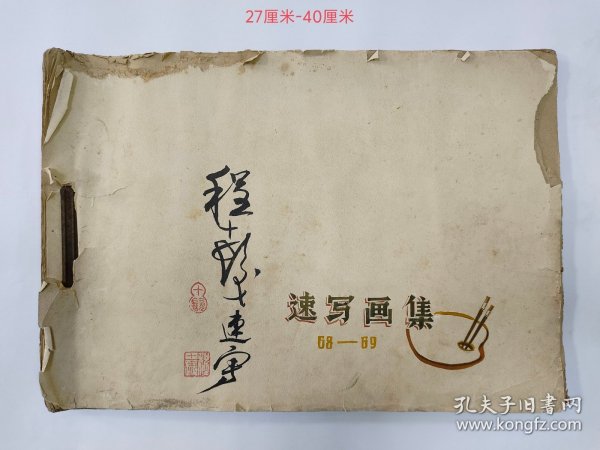 27厘米-40厘米
程十发速写
速写画集
68—69
孔夫子旧书网
www.kongfz.com